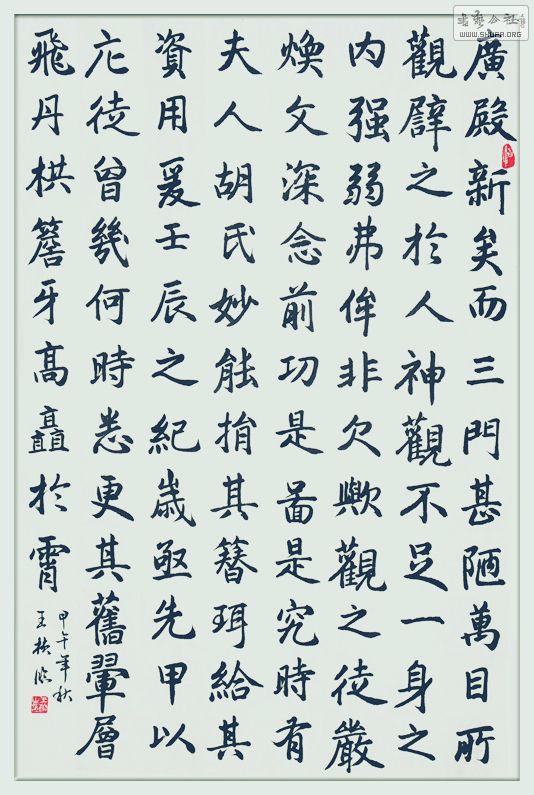 書藝公社
WWW.SHUFA.ORG
廣殿新矣而三門甚陋萬目所
觀辟之於人神觀不足一身之
内强弱弗侔非欠歟觀之徒嚴
煥文深念前功是啚是究時有
夫人胡氏妙能捐其簪珥給其
資用爰壬辰之紀歲亟先甲以
庀徒曾幾何時悉更其舊翬層
飛丹栱簷牙高矗於霄
甲午年秋
王臨